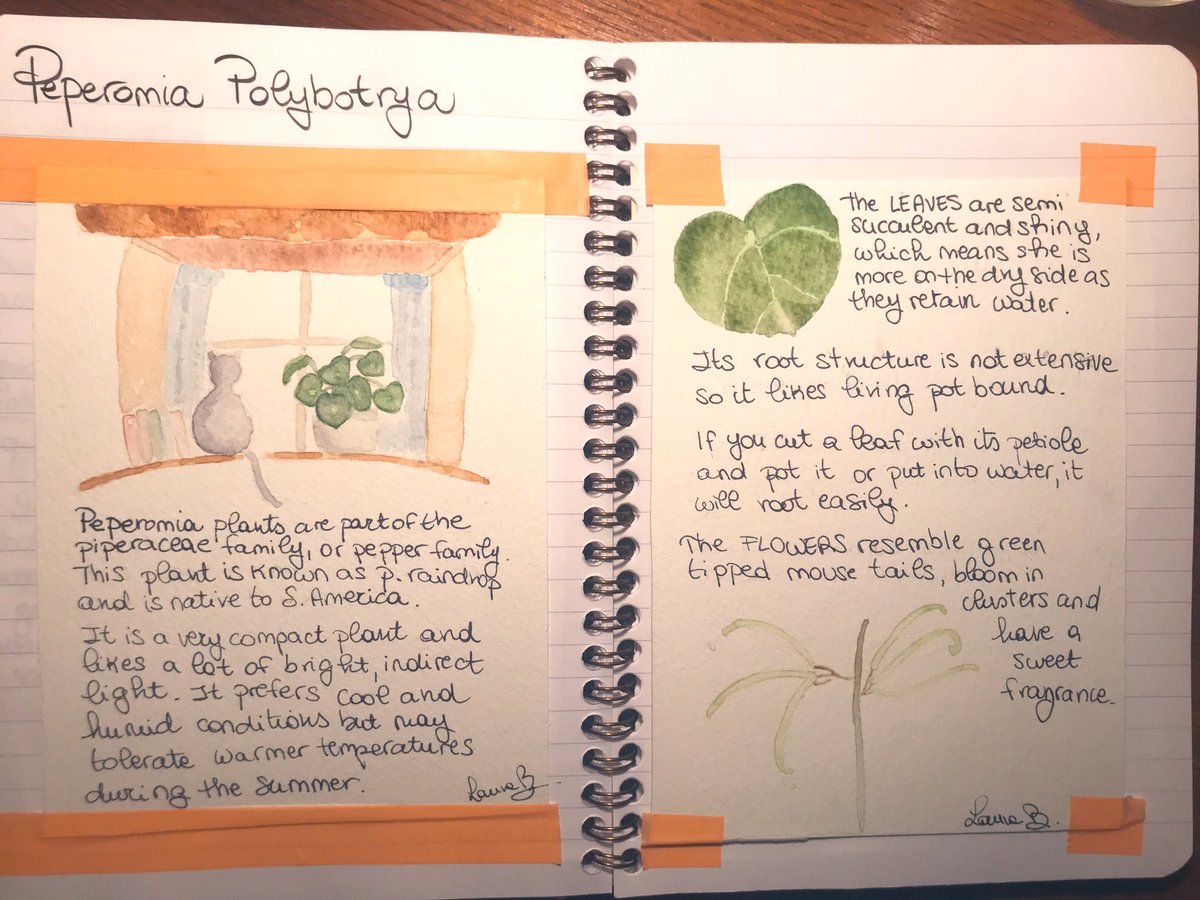 Peperomia Polybotrya
Peperomia plants are part of the
piperaceae family, or pepper family.
This plant is known as p. raindrop
and is native to S. America.
It is a very compact plant and
likes a lot of bright, indirect
light. It prefers cool and
humid conditions but may
tolerate warmer temperatures
during the summer.
Laura B.
the LEAVES are semi
succulent and shiny,
which means she is
more on the dry side as
they retain water.
Its root structure is not extensive
so it likes living pot bound.
If you cut a leaf with its petiole
and pot it or put into water, it
will root easily.
The FLOWERS resemble green
tipped mouse tails, bloom in
clusters and
have a
sweet
fragrance.
Laura B.